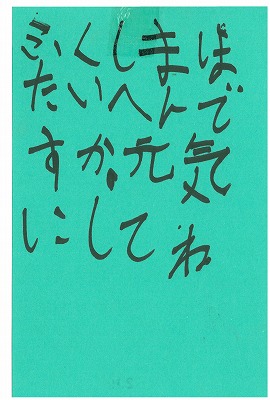 ふくしまは
たいへんで
すが元気
にしてね